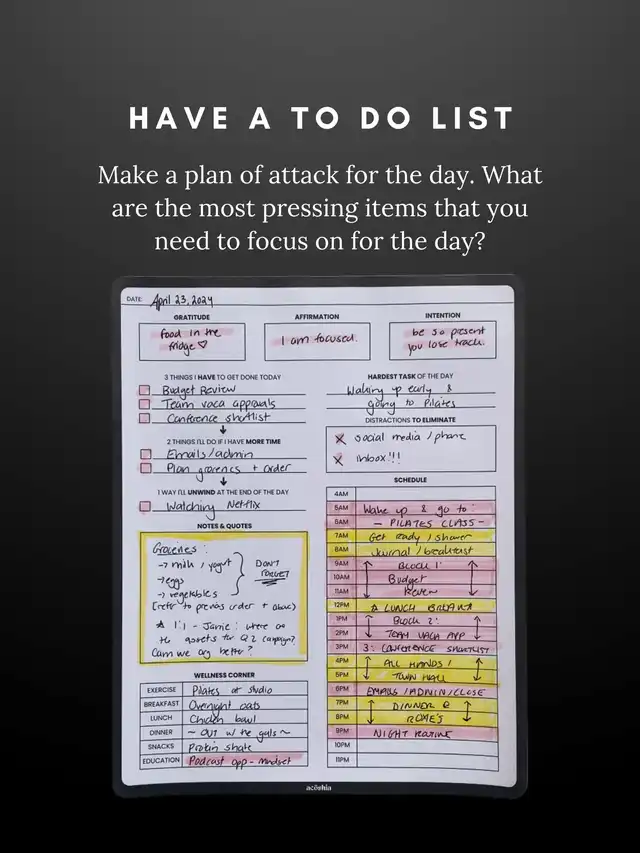 HAVE A TO DO LIST
Make a plan of attack for the day. What
are the most pressing items that you
need to focus on for the day?
DATE: April 23, 2024
GRATITUDE
food in the
fridge ♡
AFFIRMATION
I am focused.
INTENTION
be so present
you lose track.
3 THINGS I HAVE TO GET DONE TODAY
Budget Review
Team vaca approvals
Conference shortlist
2 THINGS I'LL DO IF I HAVE MORE TIME
Emails/admin
Plan groceries + order
1 WAY I'LL UNWIND AT THE END OF THE DAY
Watching Netflix
NOTES & QUOTES
Groceries:
→ milk / yogurt
→ eggs
→ vegetables
DON'T
FORGET
(refer to previous order + above)
☆ 1:1 - Jamie: where are
the assets for Q2 campaign?
Can we org better?
WELLNESS CORNER
EXERCISE Pilates at studio
BREAKFAST Overnight oats
LUNCH Chicken bowl
DINNER ~ OUT w/ the gals ~
SNACKS Protein shake
EDUCATION Podcast app - mindset
HARDEST TASK OF THE DAY
Waking up early &
going to Pilates
DISTRACTIONS TO ELIMINATE
X social media / phone
X inbox!!!
SCHEDULE
4AM
5AM Wake up & go to:
6AM - PILATES CLASS -
7AM Get ready / shower
8AM Journal / breakfast
9AM BLOCK 1:
10AM Budget
11AM Review
12PM ☆ LUNCH BREAK ☆
1PM Block 2:
2PM TEAM VACA APP
3PM 3: CONFERENCE SHORTLIST
4PM ALL HANDS /
5PM TOWN HALL
6PM EMAILS /ADMIN/CLOSE
7PM DINNER @
8PM ROME'S
9PM NIGHT ROUTINE
10PM
11PM